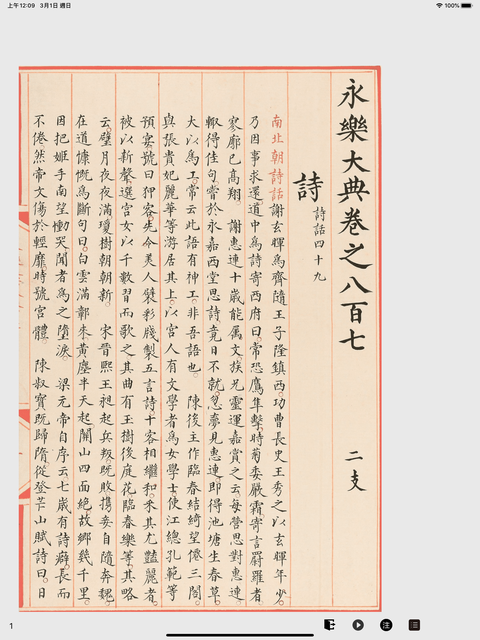 上午12:09 3月1日 週日
100%
永樂大典卷之八百七 二支
詩 詩話四十九
南北朝詩話 謝玄暉為齊隨王子隆鎮西功曹長史王秀之以玄暉年少
乃因事求還道中為詩寄西府曰常恐鷹隼擊時菊委嚴霜寄言罻羅者
寥廓已高翔 謝惠連十歲能属文族兄靈運嘉賞之云每營思對惠連
輒得佳句嘗於永嘉西堂思詩竟日不就忽夢見惠連即得池塘生春草
大以為工常云此語有神工非吾語也 陳後主作臨春結綺望僊三閣
與張貴妃麗華等游居其上以宫人有文學者為女學士使江總孔範等
預宴號曰狎客先令美人襞彩牋製五言詩十客相繼和采其尤豔麗者
被以新聲選宮女以千數習而歌之其曲有玉樹後庭花臨春樂等其略
云璧月夜夜滿瓊樹朝朝新 宋晉熙王昶起兵叛既敗携妾自隨奔魏
在道慷慨為斷句曰白雲滿鄣來黃塵半天起關山四面絶故鄉幾千里
因把姬手南望慟哭聞者為之墮淚 梁元帝自序云七歲有詩癖長而
不倦然帝文傷於輕靡時號宫體 陳叔寶既歸隋從登芒山賦詩曰日
1
注